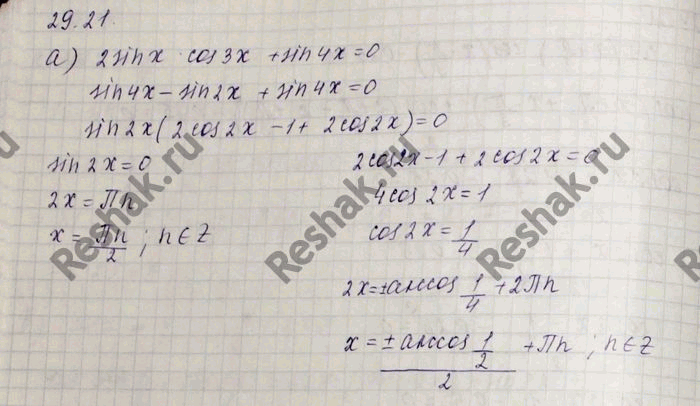 29.21.
а) 2sinx · cos3x + sin4x = 0
sin4x - sin2x + sin4x = 0
sin2x(2cos2x - 1 + 2cos2x) = 0
sin2x = 0
2x = Πn
x = Πn/2 ; n ∈ Z
2cos2x - 1 + 2cos2x = 0
4cos2x = 1
cos2x = 1/4
2x = ±arccos 1/4 + 2Πn
x = ±arccos 1/2 / 2 + Πn ; n ∈ Z
Reshak.ru
Reshak.ru
Reshak.ru